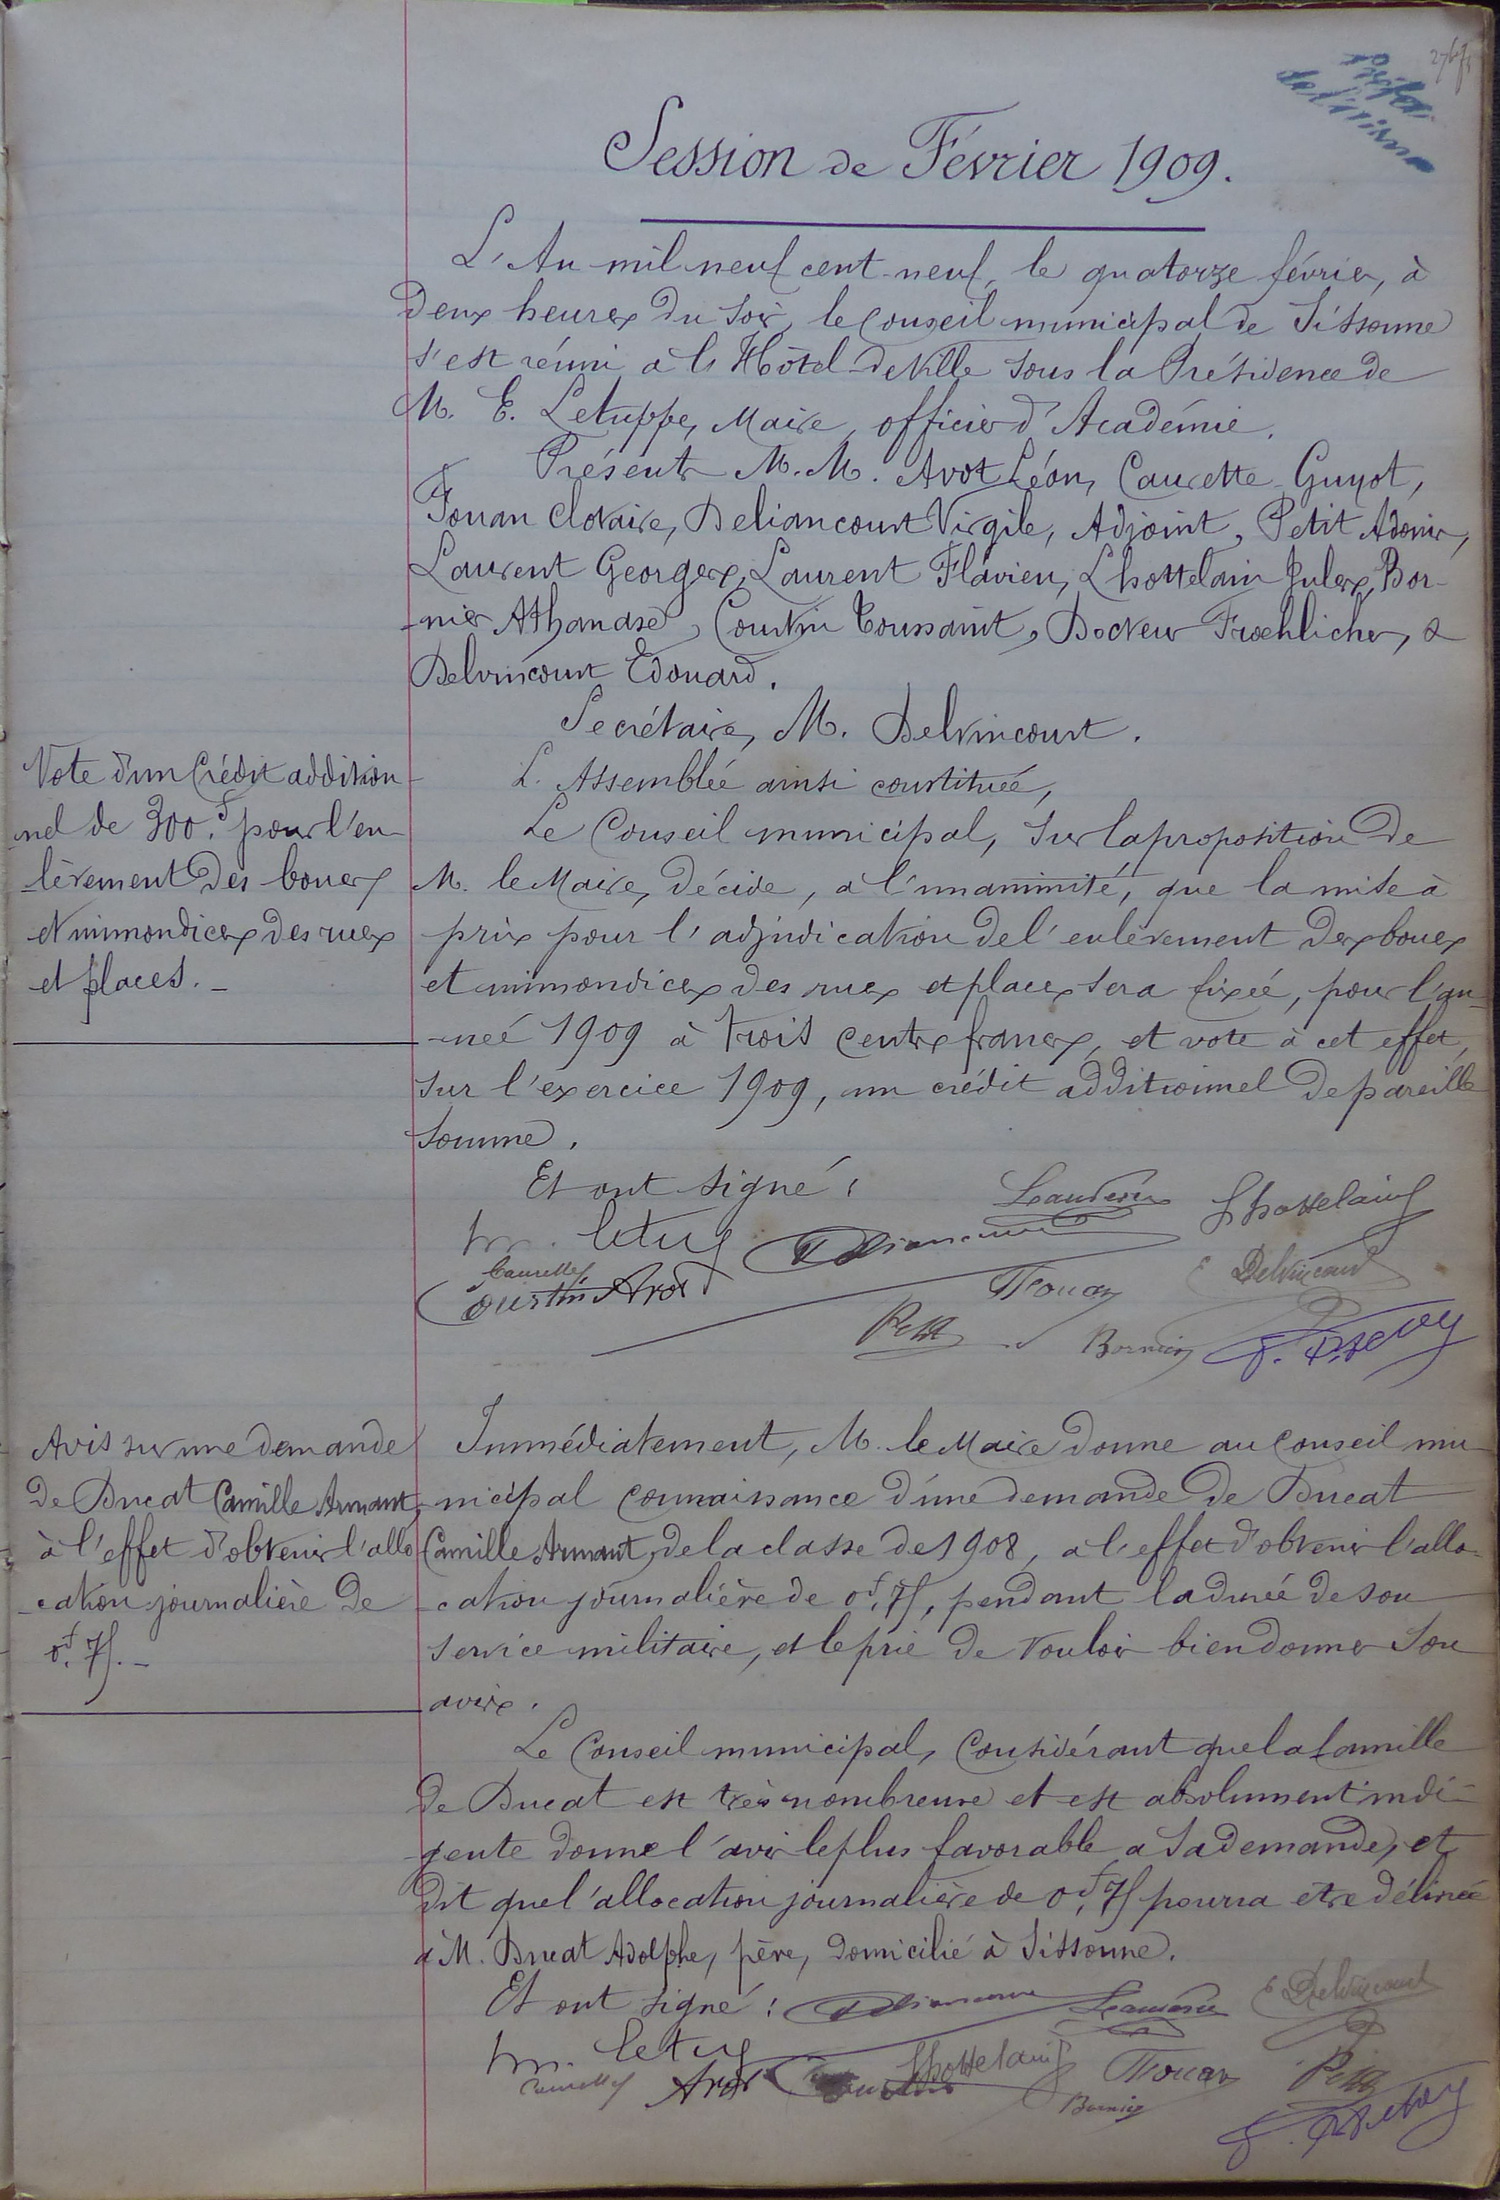 Session de Février 1909.
L'An mil neuf cent neuf, le quatorze février, à
deux heures du soir, le Conseil municipal de Sissonne
s'est réuni à l'Hôtel de Ville sous la Présidence de
M. E. Letuppe, Maire, officier d'Académie.
Présents M.M. Avot Léon, Caurette-Guyot,
Fouan Clotaire, Deliancourt Virgile, Adjoint, Petit Adonis,
Laurent Georges, Laurent Flavien, Lhottelain Jules, Bor-
-nier Athanase, Courtin Toussaint, Docteur Froehlicher, &
Delvincourt Edouard.
Secrétaire, M. Delvincourt.
L'Assemblée ainsi constituée,
Vote d'un Crédit addition
-nel de 300.f pour l'en-
-lèvement des boues
et immondices des rues
et places.-
Le Conseil municipal, sur la proposition de
M. le Maire, décide, à l'unanimité, que la mise à
prix pour l'adjudication de l'enlèvement des boues
et immondices des rues et places sera fixée, pour l'an-
-née 1909 à trois cents francs, et vote à cet effet,
sur l'exercice 1909, un crédit additionnel de pareille
somme.
Et ont signé:
Lhottelain
Letup
Caurette
Courtin Avot
Fouan
Delvincourt
Petit
Bornier
Avis sur une demande
de Bucat Camille Armant,
à l'effet d'obtenir l'allo
-cation journalière de
0f,75.-
Immédiatement, M. le Maire donne au Conseil mu-
nicipal connaissance d'une demande de Bucat
Camille Armant, de la classe de 1908, à l'effet d'obtenir l'allo-
-cation journalière de 0f,75, pendant la durée de son
service militaire, et le prie de vouloir bien donner son
avis.
Le Conseil municipal, Considérant que la famille
de Bucat est très nombreuse et est absolument indi-
gente donne l'avis le plus favorable à sa demande, et
dit que l'allocation journalière de 0f,75 pourra être délivrée
à M. Bucat Adolphe, père, domicilié à Sissonne.
Et ont signé:
Delvincourt
Letup
Caurette Avot
Lhottelain
Fouan
Petit
Bornier